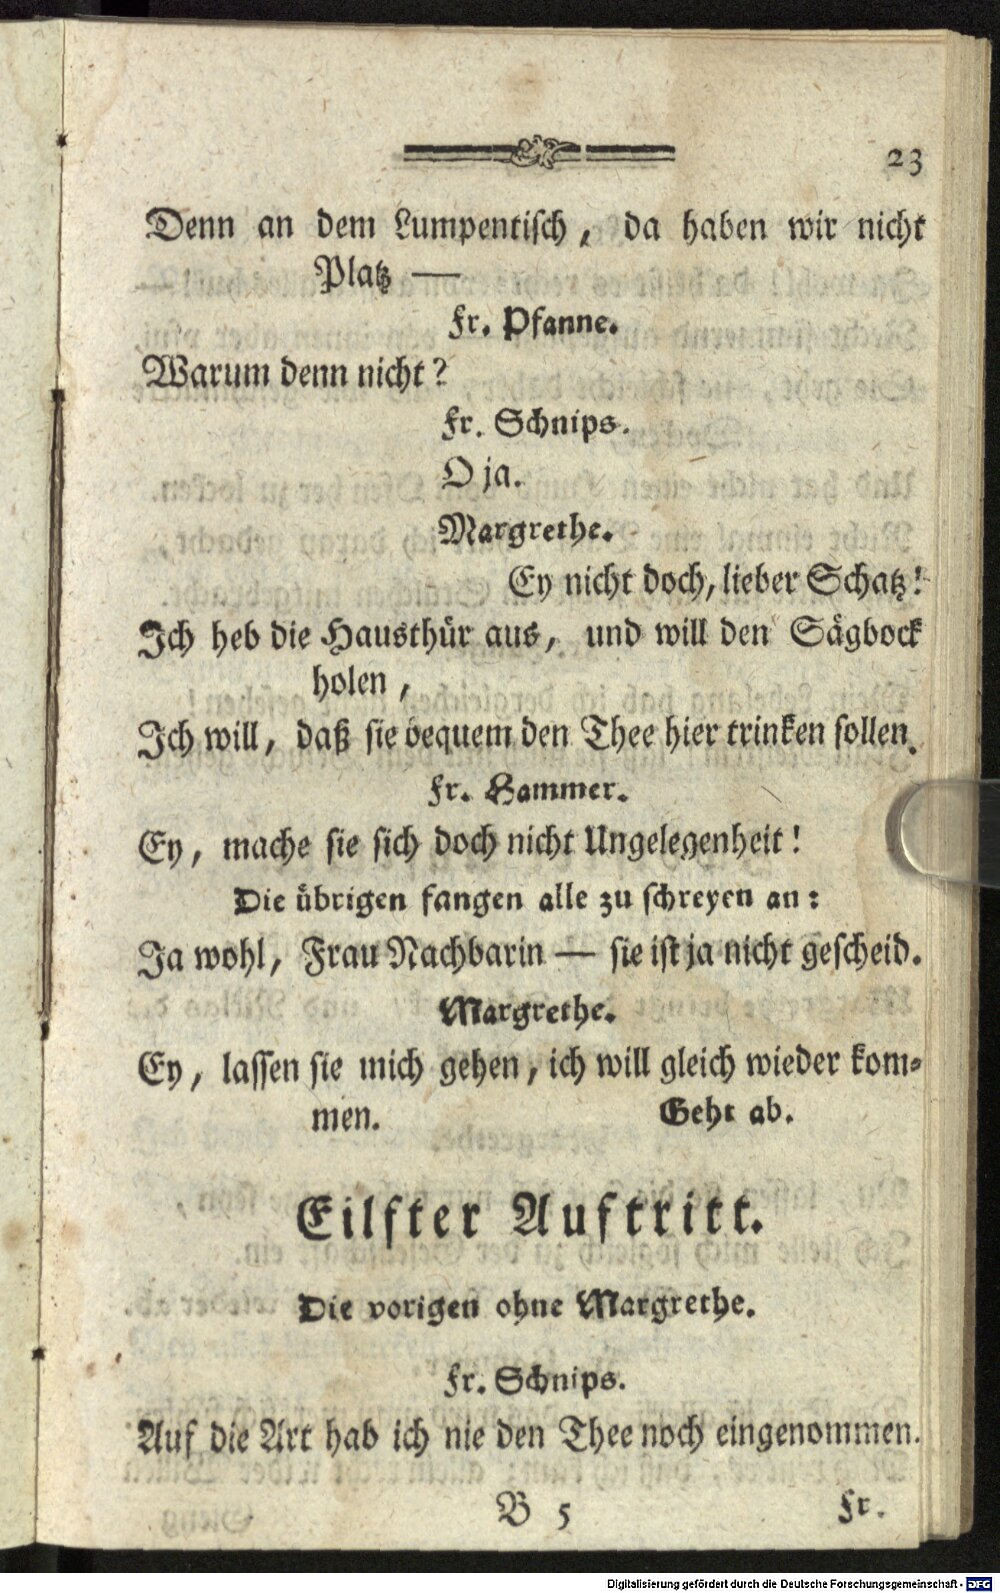 23
Denn an dem Lumpentisch, da haben wir nicht
Platz —
Fr. Pfanne.
Warum denn nicht?
Fr. Schnips.
O ja.
Margrethe.
Ey nicht doch, lieber Schatz!
Ich heb die Hausthür aus, und will den Sägbock
holen,
Ich will, daß sie bequem den Thee hier trinken sollen.
Fr. Hammer.
Ey, mache sie sich doch nicht Ungelegenheit!
Die übrigen fangen alle zu schreyen an:
Ja wohl, Frau Nachbarin — sie ist ja nicht gescheid.
Margrethe.
Ey, lassen sie mich gehen, ich will gleich wieder kom-
men. Geht ab.
Eilfter Auftritt.
Die vorigen ohne Margrethe.
Fr. Schnips.
Auf die Art hab ich nie den Thee noch eingenommen.
B 5 Fr.
Digitalisierung gefördert durch die Deutsche Forschungsgemeinschaft - DFG